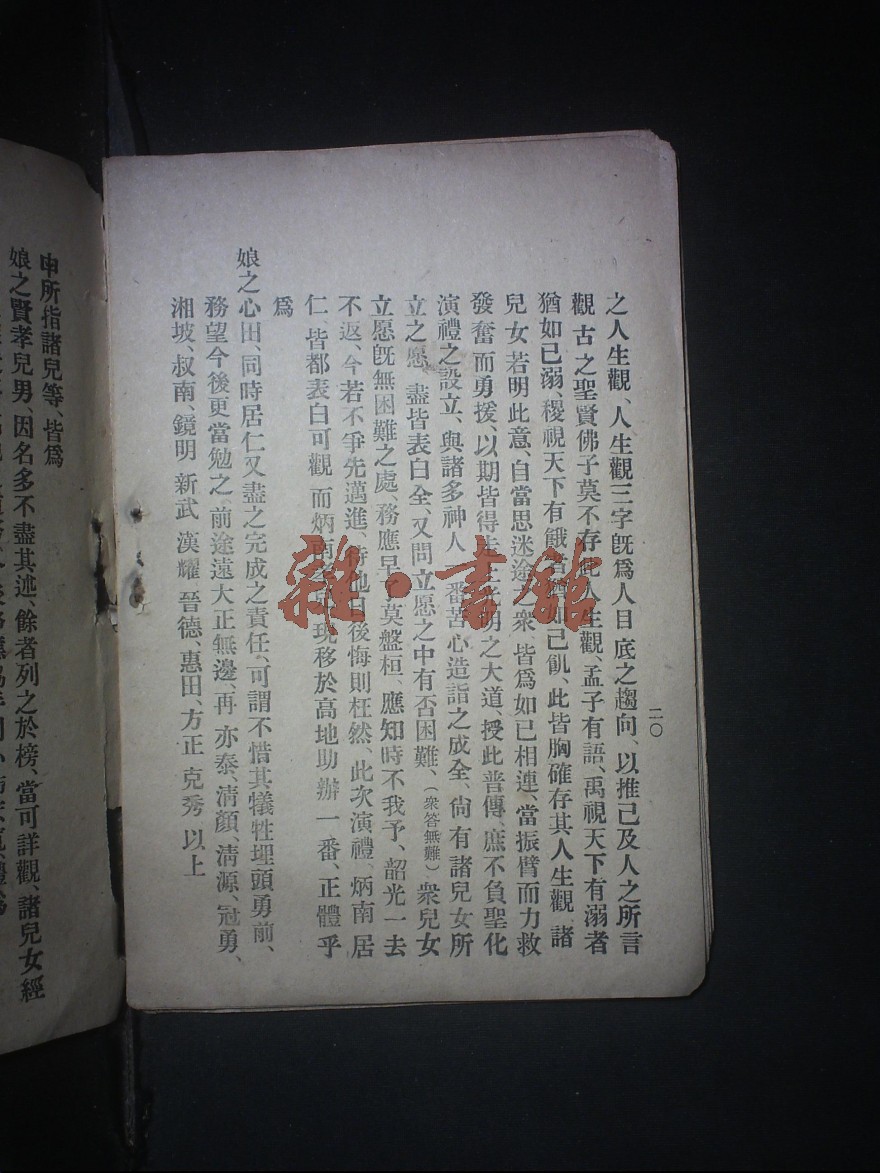 二〇
之人生觀、人生觀三字旣爲人目底之趨向、以推己及人之所言
觀古之聖賢佛子莫不存此人生觀、孟子有語、禹視天下有溺者
猶如已溺、稷視天下有餓者猶如己飢、此皆胸確存其人生觀、諸
兒女若明此意、自當思迷途之衆、皆爲如已相連、當振臂而力救
發奮而勇援、以期皆得走上光明之大道、授此普傳、庶不負聖化
演禮之設立、與諸多神人一番苦心造詣之成全、尙有諸兒女所
立之愿、盡皆表白全、又問立愿之中有否困難、（衆答無難）衆兒女
立愿旣無困難之處、務應早予莫盤桓、應知時不我予、韶光一去
不返、今若不爭先邁進、待他日後悔則枉然、此次演禮、炳南居
仁、皆都表白可觀、而炳南 現移於高地助辦一番、正體乎
爲
娘之心田、同時居仁又盡之完成之責任、可謂不惜其犧牲埋頭勇前、
務望今後更當勉之、前途遠大正無邊、再亦泰、淸顏、淸源、冠勇、
湘坡、叔南、鏡明 新武 漢耀 晉德、惠田、方正 克秀 以上
申所指諸兒等、皆爲
娘之賢孝兒男、因名多不盡其述、餘者列之於榜、當可詳觀、諸兒女經
雜·書館